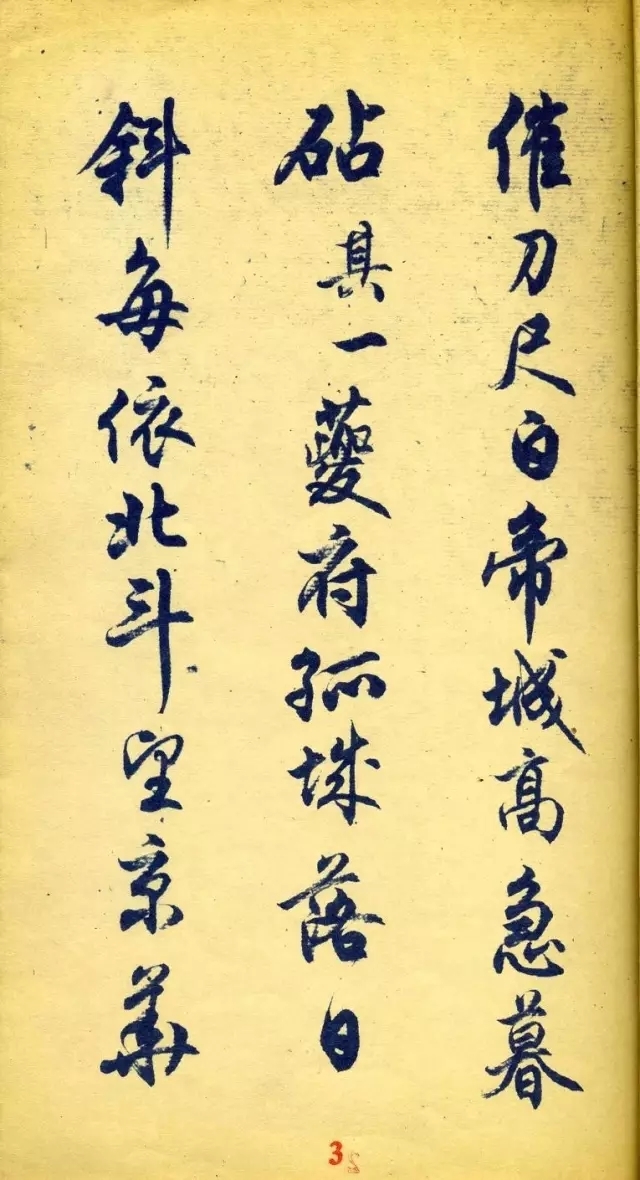 催刀尺白帝城高急暮
砧其一夔府孤城落日
斜每依北斗望京華
3